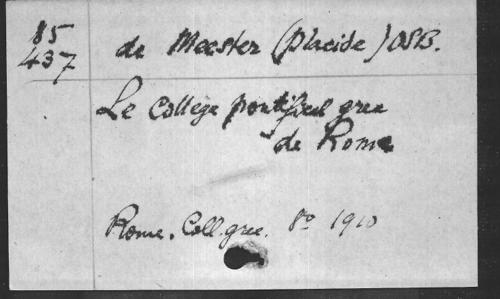 85
437
de Meester (Placide) OSB.
Le Collège pontifical grec
de Rome
Rome. Coll. grec. 8º 1910